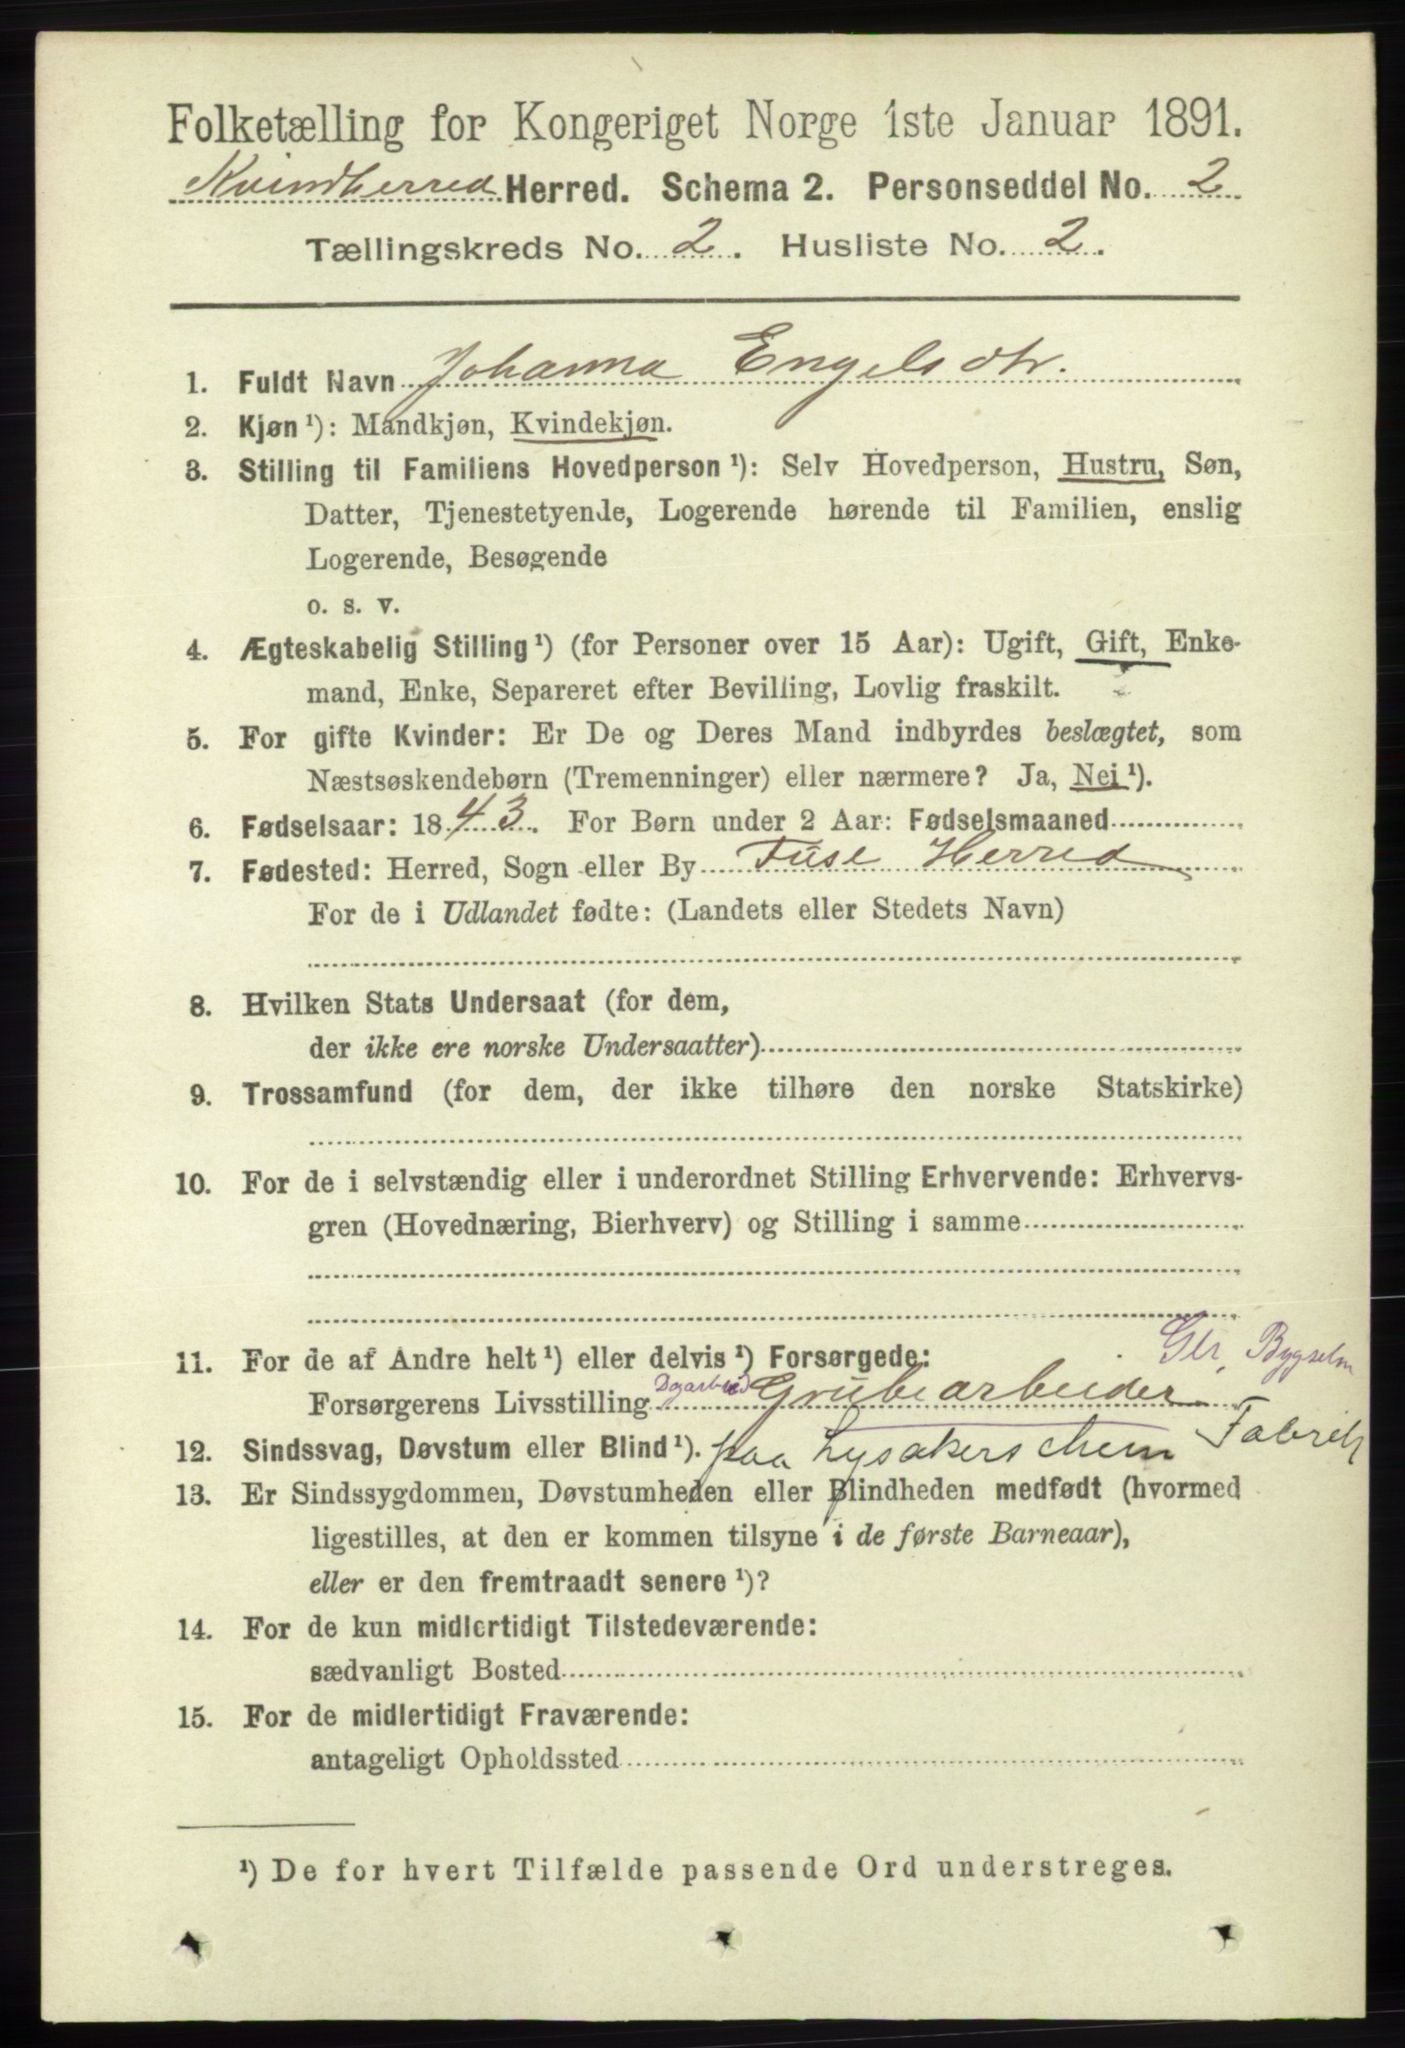 Folketælling for Kongeriget Norge 1ste Januar 1891.
Kvindherred Herred. Schema 2. Personseddel No. 2
Tællingskreds No. 2. Husliste No. 2.
1. Fuldt Navn Johanna Engelsdtr.
2. Kjøn ¹): Mandkjøn, Kvindekjøn.
3. Stilling til Familiens Hovedperson ¹): Selv Hovedperson, Hustru, Søn,
Datter, Tjenestetyende, Logerende hørende til Familien, enslig
Logerende, Besøgende
o. s. v.
4. Ægteskabelig Stilling ¹) (for Personer over 15 Aar): Ugift, Gift, Enke-
mand, Enke, Separeret efter Bevilling, Lovlig fraskilt.
5. For gifte Kvinder: Er De og Deres Mand indbyrdes beslægtet, som
Næstsøskendebørn (Tremenninger) eller nærmere? Ja, Nei ¹).
6. Fødselsaar: 1843. For Børn under 2 Aar: Fødselsmaaned
7. Fødested: Herred, Sogn eller By Fuse Herred
For de i Udlandet fødte: (Landets eller Stedets Navn)
8. Hvilken Stats Undersaat (for dem,
der ikke ere norske Undersaatter)
9. Trossamfund (for dem, der ikke tilhøre den norske Statskirke)
10. For de i selvstændig eller i underordnet Stilling Erhvervende: Erhvervs-
gren (Hovednæring, Bierhverv) og Stilling i samme
Bygselm
11. For de af Andre helt ¹) eller delvis ¹) Forsørgede:
Forsørgerens Livsstilling Grubearbeider
12. Sindssvag, Døvstum eller Blind ¹). paa Lysakers chem Fabrik
13. Er Sindssygdommen, Døvstumheden eller Blindheden medfødt (hvormed
ligestilles, at den er kommen tilsyne i de første Barneaar),
eller er den fremtraadt senere ¹)?
14. For de kun midlertidigt Tilstedeværende:
sædvanligt Bosted
15. For de midlertidigt Fraværende:
antageligt Opholdssted
¹) De for hvert Tilfælde passende Ord understreges.